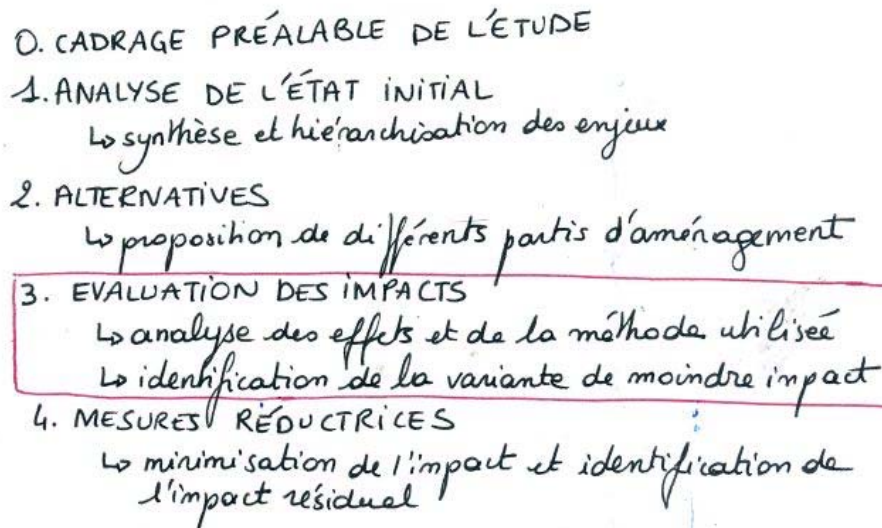 0. CADRAGE PRÉALABLE DE L'ÉTUDE
1. ANALYSE DE L'ÉTAT INITIAL
↳ synthèse et hiérarchisation des enjeux
2. ALTERNATIVES
↳ proposition de différents partis d'aménagement
3. EVALUATION DES IMPACTS
↳ analyse des effets et de la méthode utilisée
↳ identification de la variante de moindre impact
4. MESURES RÉDUCTRICES
↳ minimisation de l'impact et identification de
l'impact résiduel